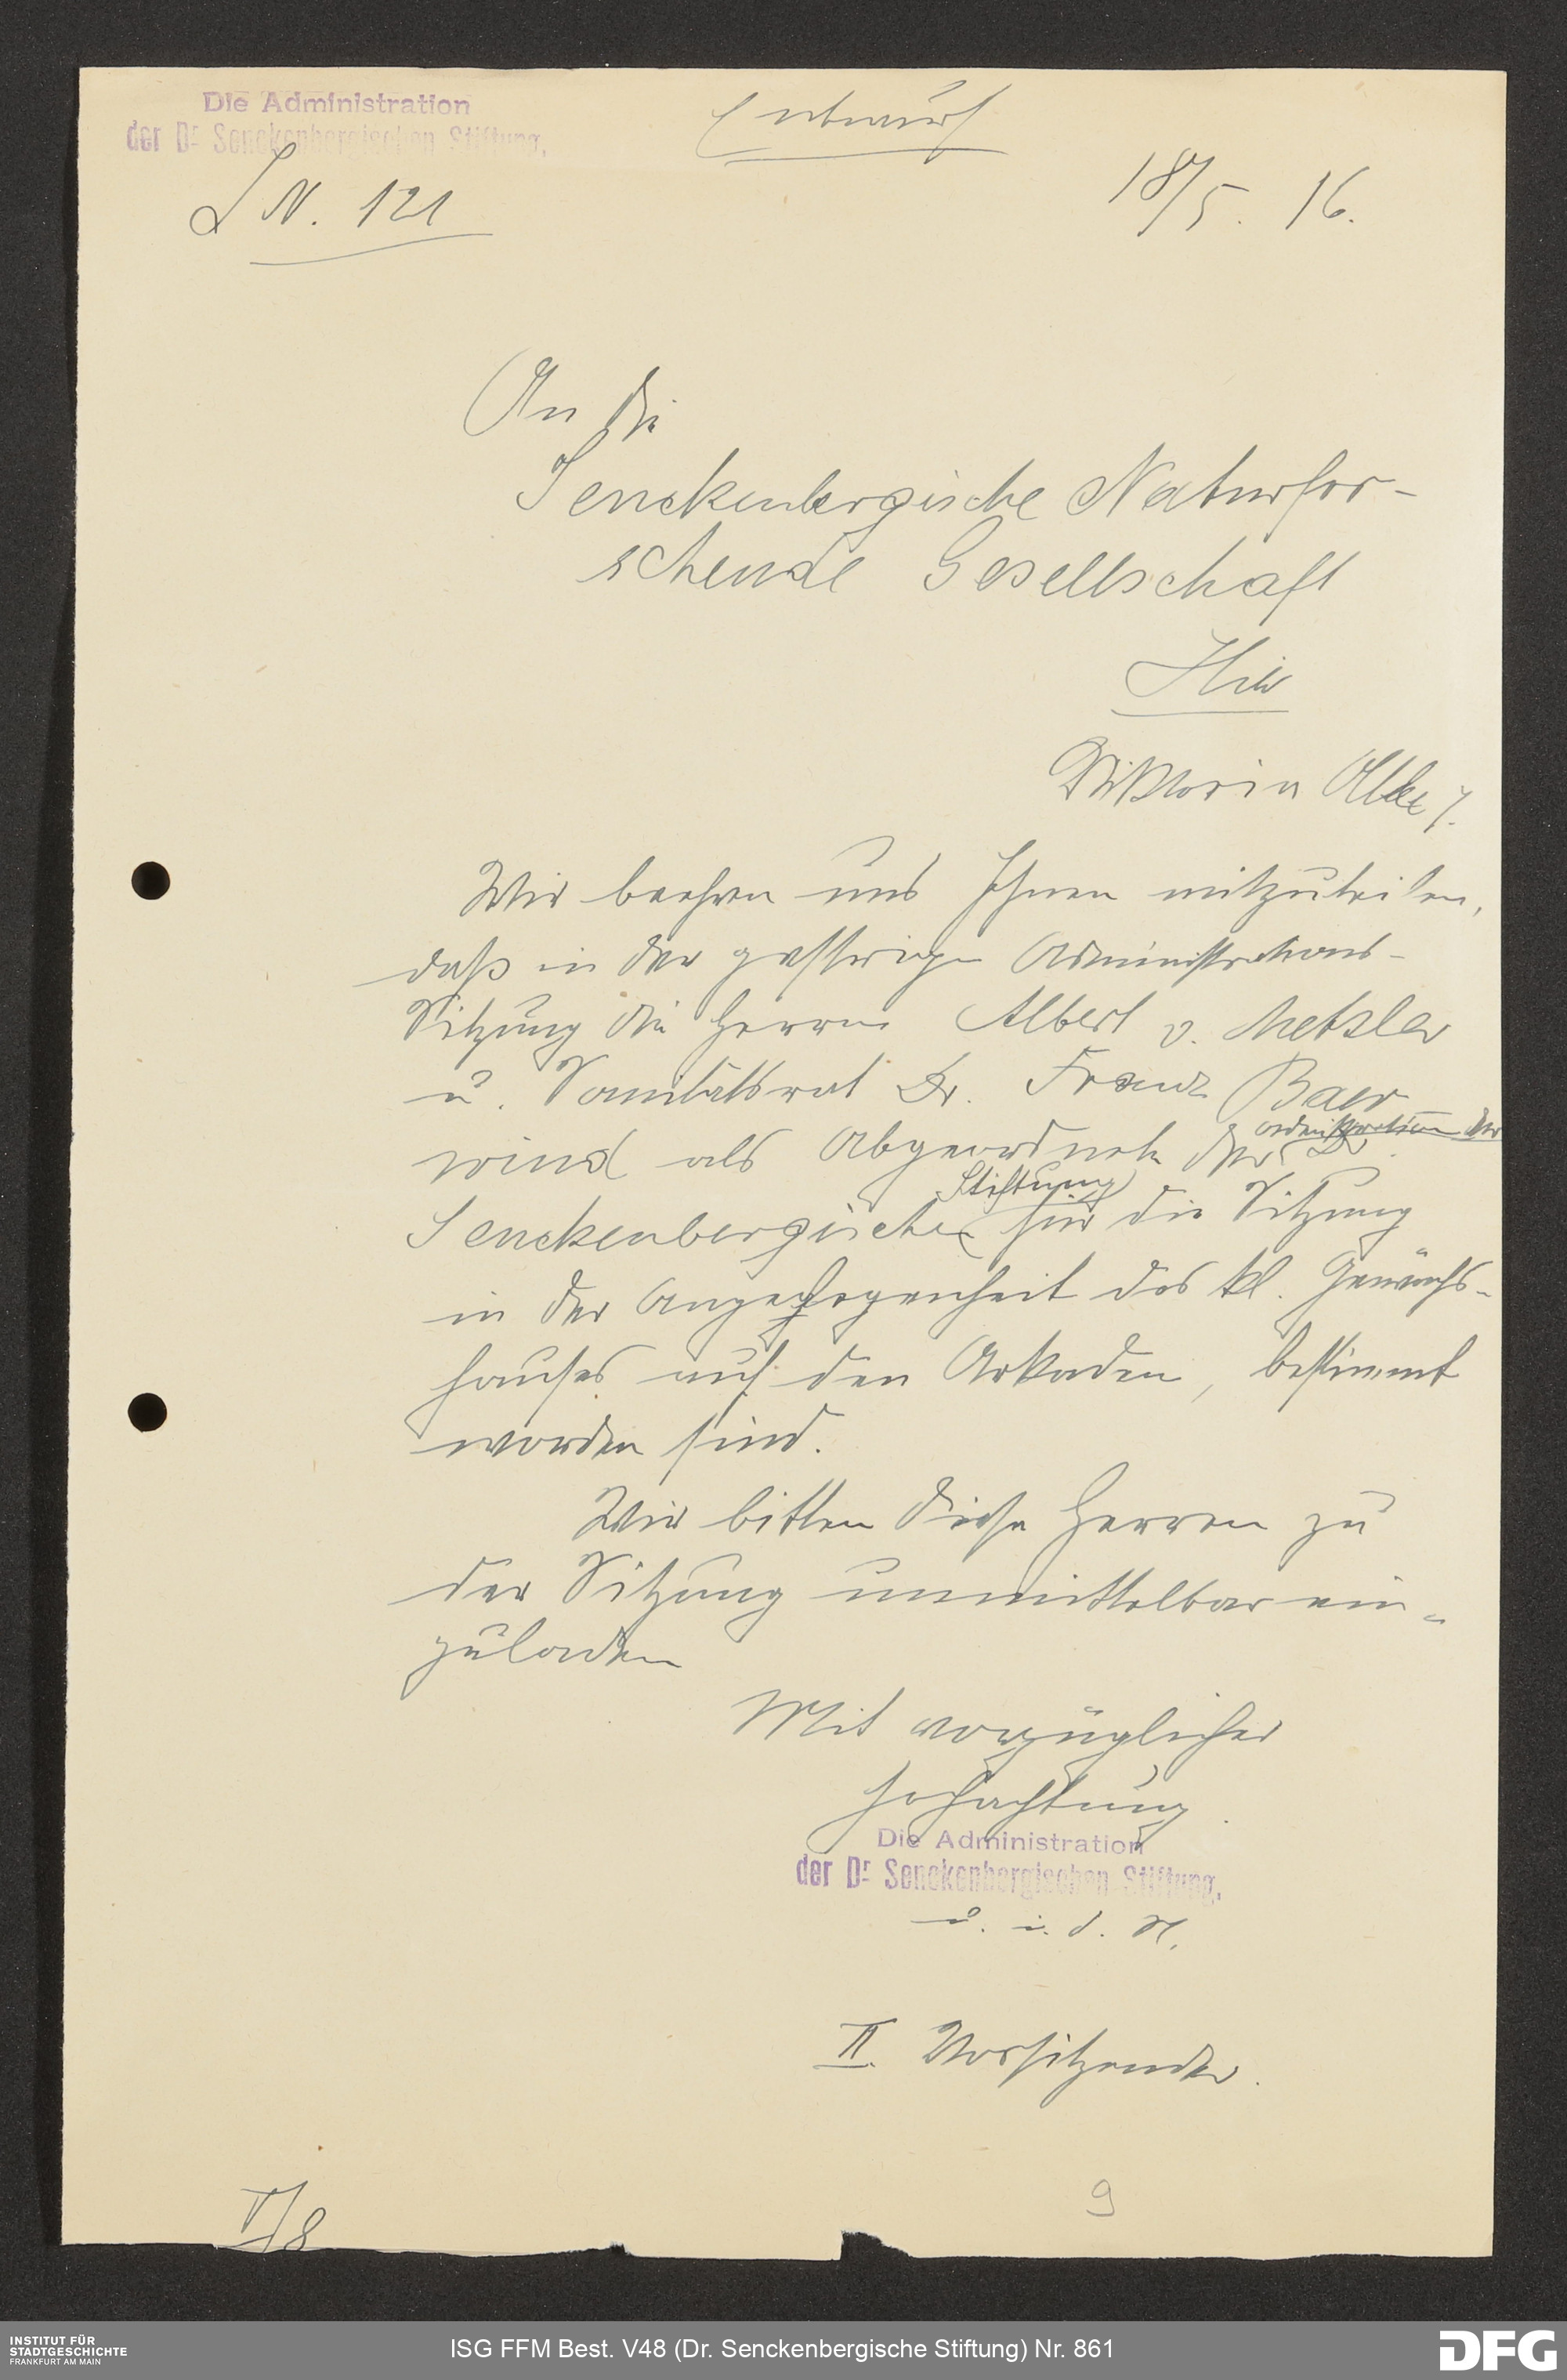 Die Administration
der Dr. Senckenbergischen Stiftung.
Entwurf
LN. 121
18/5. 16.
An die
Senckenbergische Naturfor-
schende Gesellschaft
Hier
Viktoria Allee 7.
Wir beehren uns Ihnen mitzuteilen,
daß in der gestrigen Administrations-
Sitzung die Herren Albert v. Metzler
u. Sanitätsrat Dr. Franz Baer
wind als Abgeordnete der Administration der Dr.
Senckenbergischen Stiftung für die Sitzung
in der Angelegenheit des kl. Gewächs-
hauses auf den Arkaden, bestimmt
worden sind.
Wir bitten diese Herren zu
der Sitzung unmittelbar ein-
zuladen
Mit vorzüglicher
Hochachtung
Die Administration
der Dr. Senckenbergischen Stiftung.
u. i. d. N.
II. Vorsitzender.
V/8
9
INSTITUT FÜR
STADTGESCHICHTE
FRANKFURT AM MAIN
ISG FFM Best. V48 (Dr. Senckenbergische Stiftung) Nr. 861
DFG